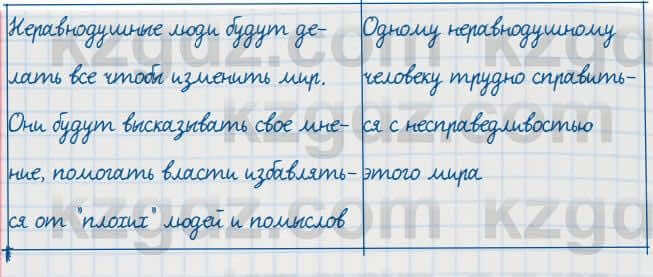 Неравнодушные люди будут де-
лать все чтобы изменить мир.
Они будут высказывать свое мне-
ние, помогать власти избавлять-
ся от "плохих" людей и помыслов
Одному неравнодушному
человеку трудно справить-
ся с несправедливостью
этого мира